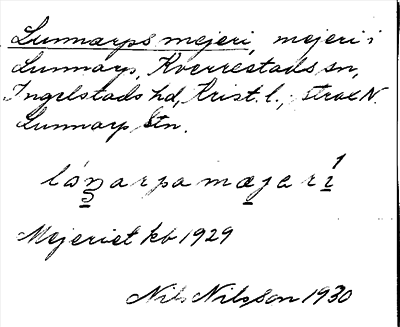 Lunnarps mejeri, mejeri i
Lunnarp, Kverrestads sn,
Ingelstads hd, Krist. l., strax N.
Lunnarp Stn.
Mejeriet kb 1929
Nils Nilsson 1930